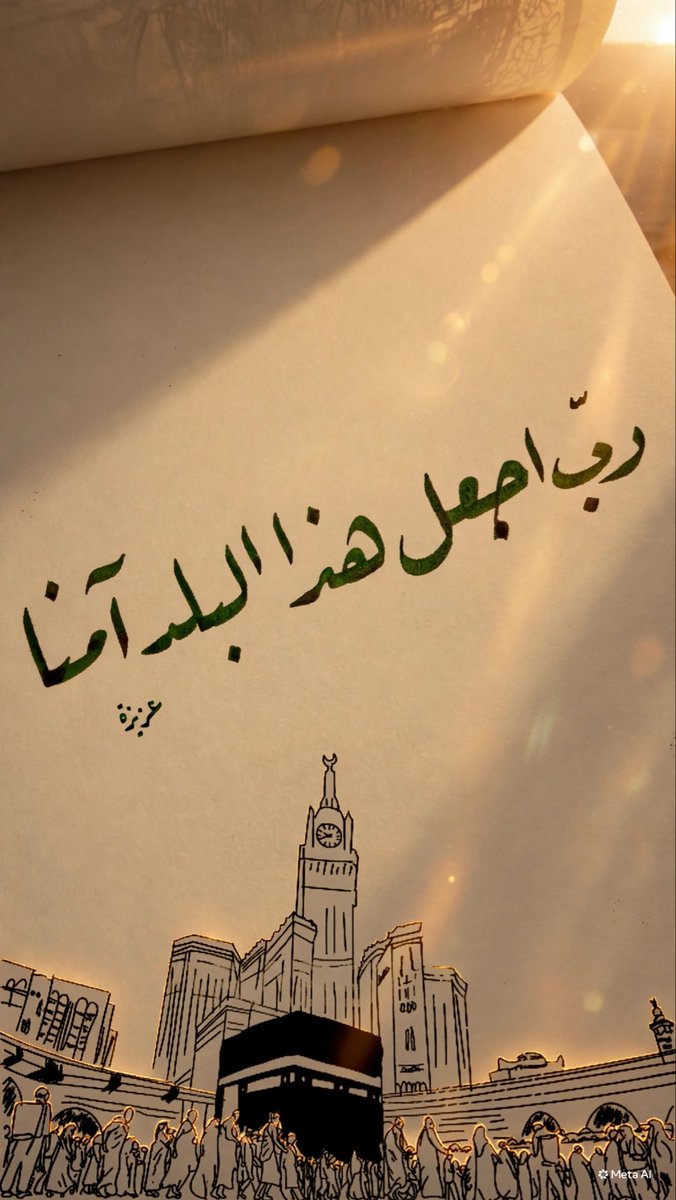 ربّ اجعل هذا البلد آمنا
عزيزة
Meta AI